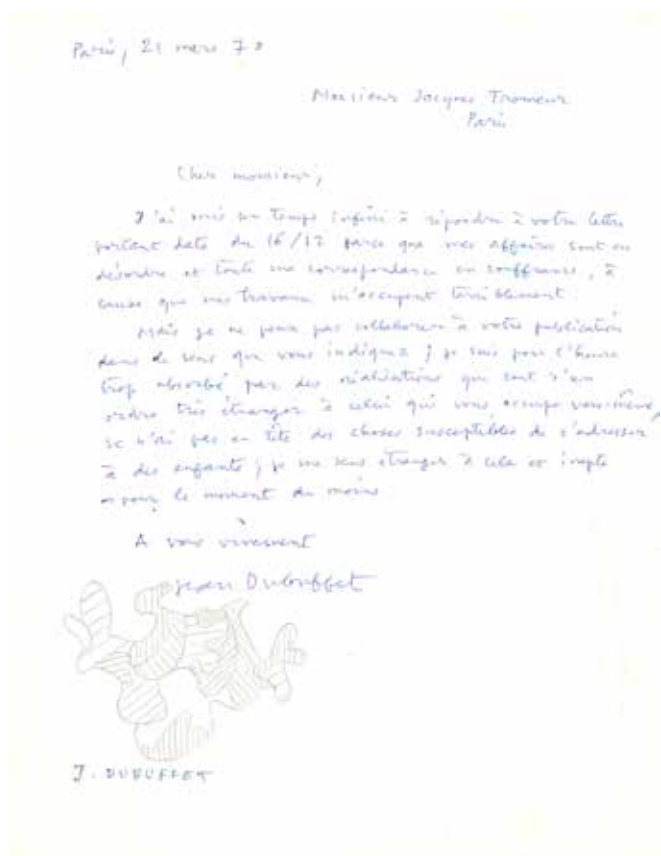 Paris, 21 mars 7
Monsieur Jacques Tromeur
Paris
Cher monsieur,
J'ai mis un temps infini à répondre à votre lettre
portant date du 16/12 parce que mes affaires sont en
désordre et toute ma correspondance en souffrance, à
cause que mes travaux m'occupent terriblement.
Mais je ne peux pas collaborer à votre publication
dans le sens que vous indiquez ; je suis pour l'heure
trop absorbé par des réalisations qui sont d'un
ordre très étranger à celui qui vous occupe vous-même,
je n'ai pas en tête des choses susceptibles de s'adresser
à des enfants ; je me sens étranger à cela et inapte
pour le moment du moins.
A vous vivement
Jean Dubuffet
J. DUBUFFET